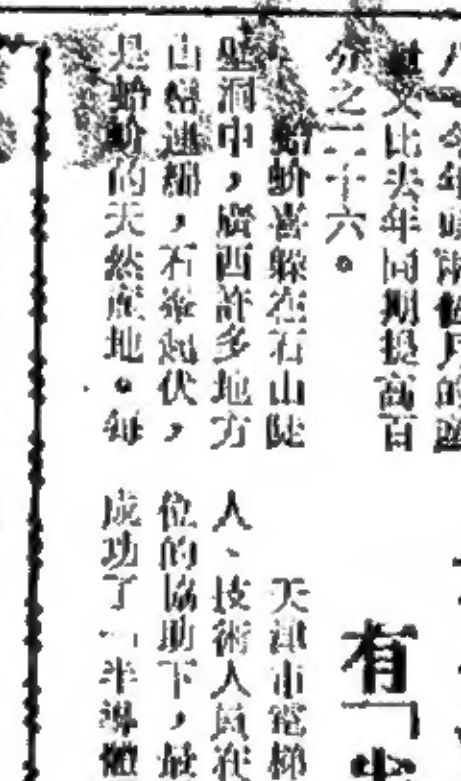 今年頭兩個月的
又比去年同期提高百
分之二十六。
蛤蚧喜躲在石山陡
壁洞中，廣西許多地方
山巒連綿，石峯起伏，
是蛤蚧的天然產地。每
有「
天津市電梯
人、技術人員在
位的協助下，最
成功了「半導體